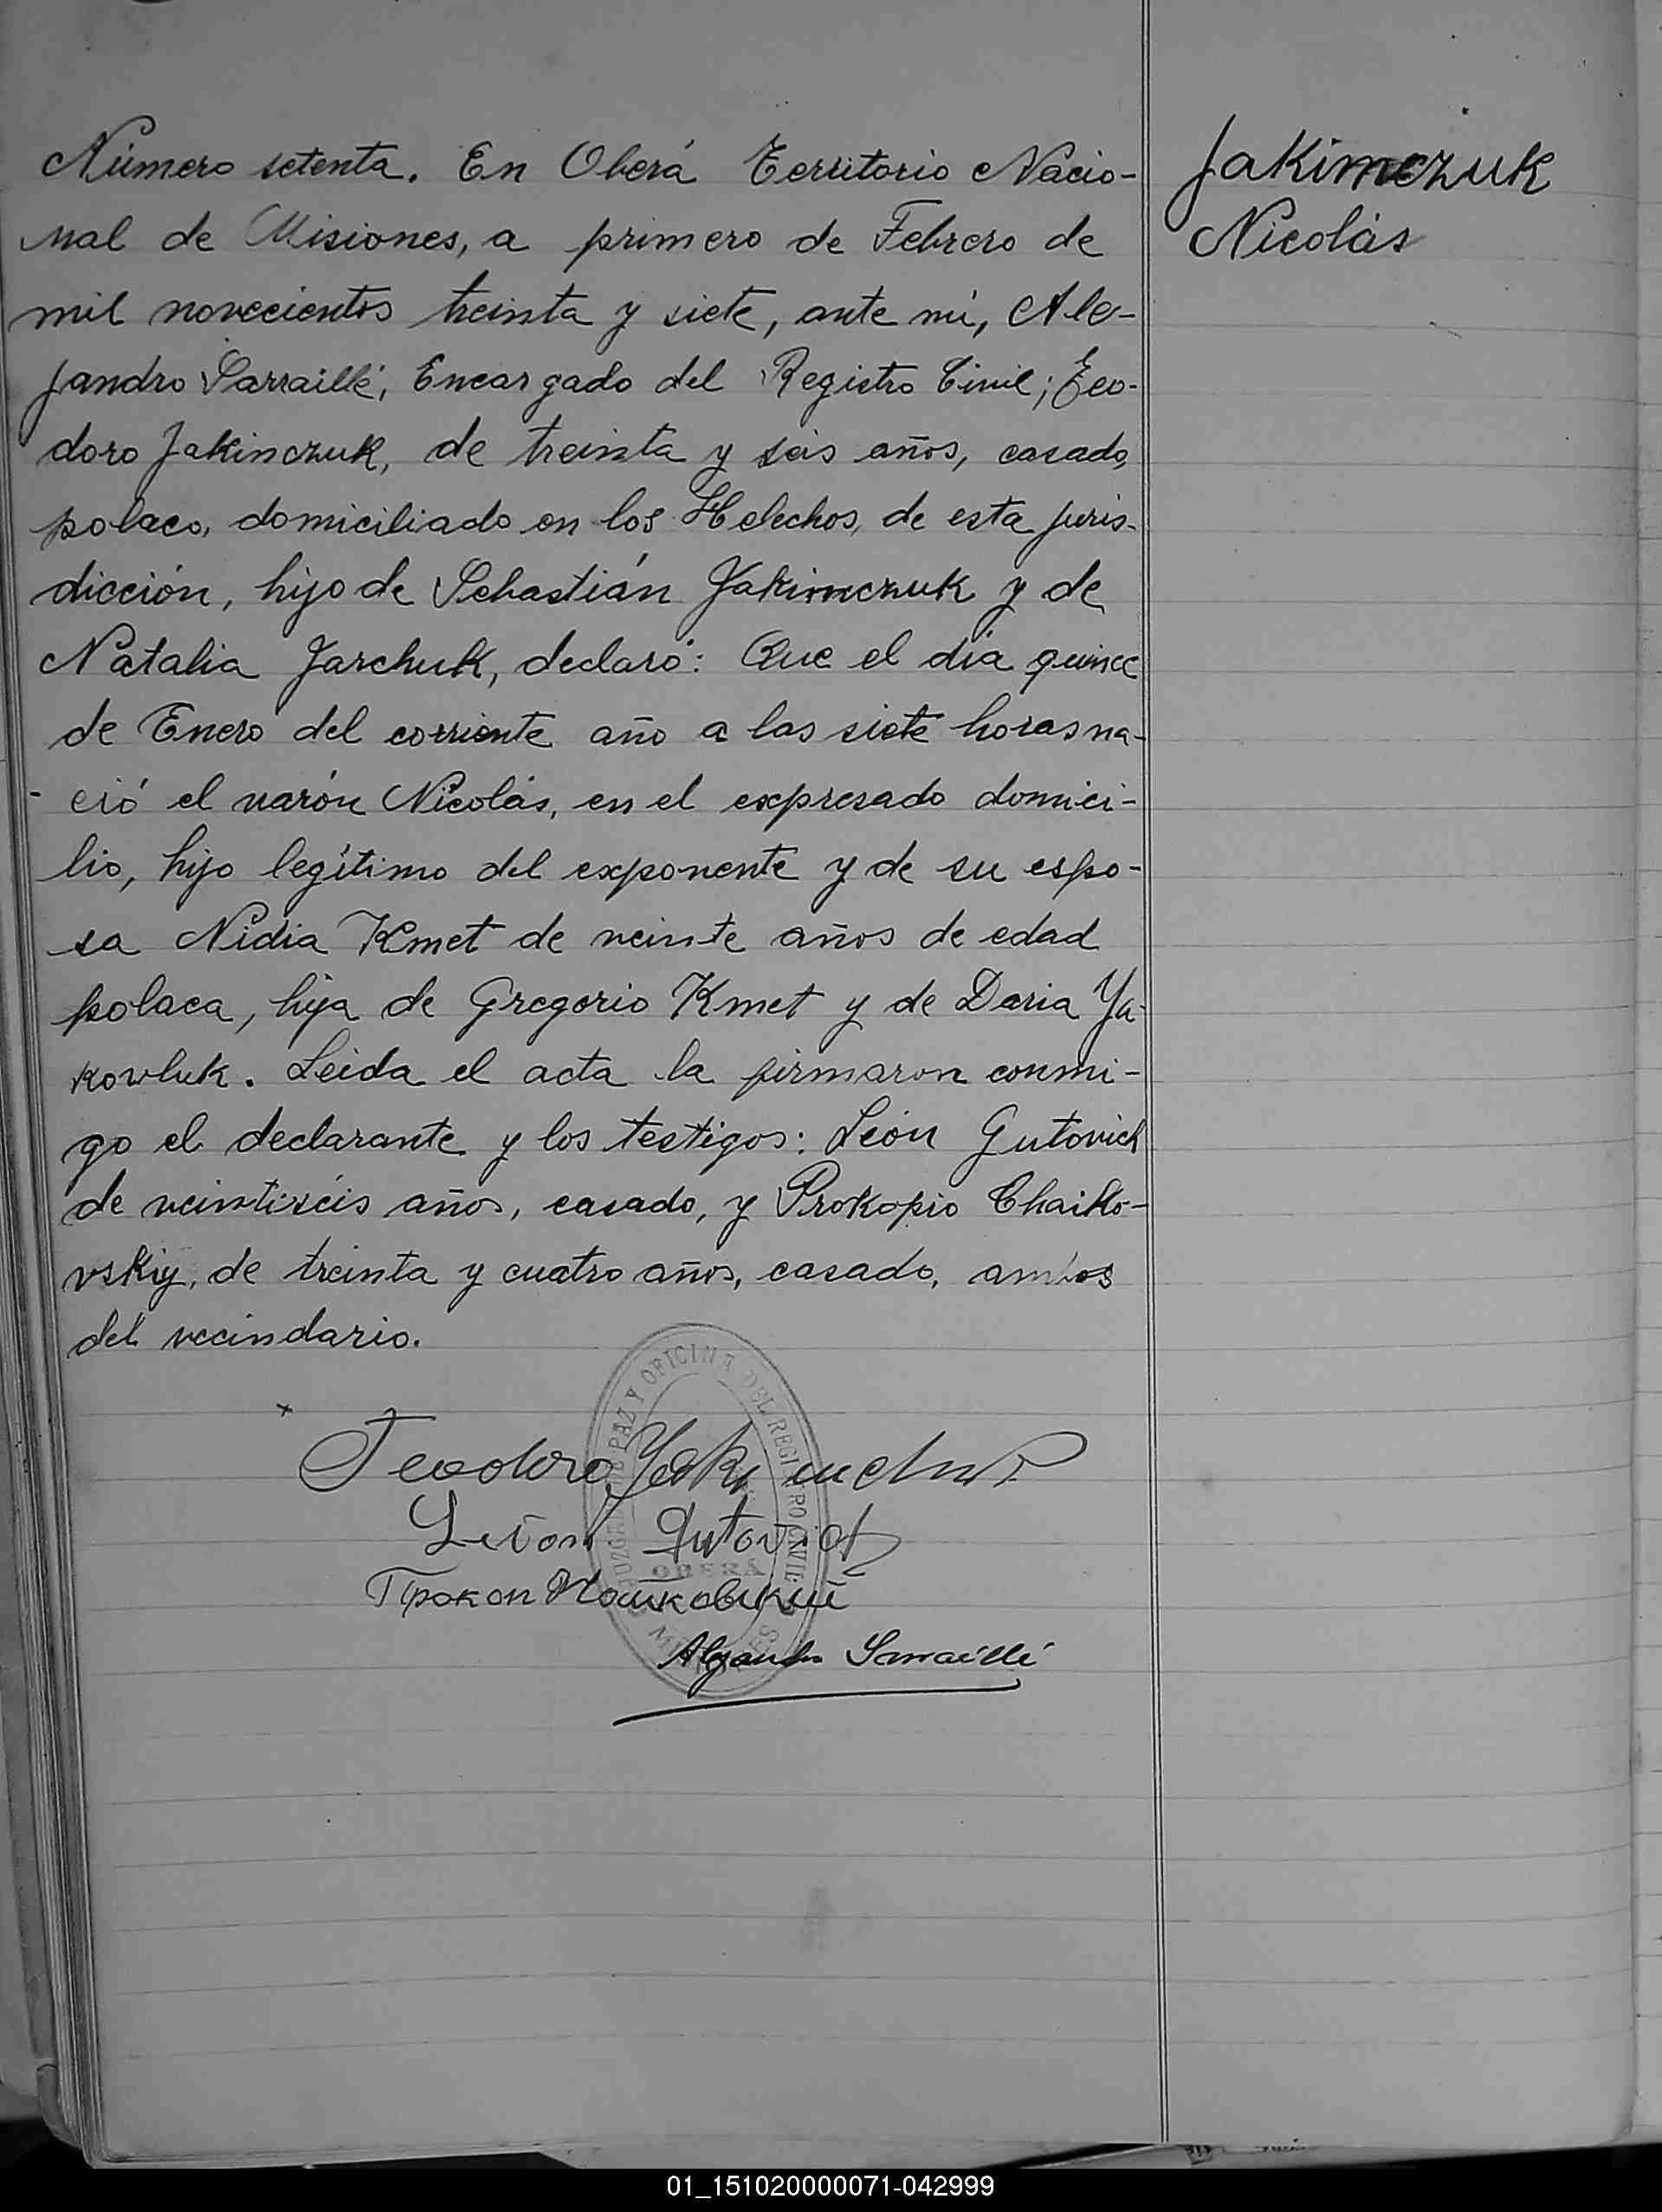 Número setenta. En Oberá Territorio Nacio-
nal de Misiones, a primero de Febrero de
mil novecientos treinta y siete, ante mí, Ale-
jandro Sarraillé, Encargado del Registro Civil; Teo-
doro Jakinczuk, de treinta y seis años, casado,
polaco, domiciliado en los Helechos, de esta juris-
dicción, hijo de Sebastián Jakimczuk y de
Natalia Jarchuk, declaró: Que el día quince
de Enero del corriente año a las siete horas na-
ció el varón Nicolás, en el expresado domici-
lio, hijo legítimo del exponente y de su espo-
sa Nidia Kmet de veinte años de edad
polaca, hija de Gregorio Kmet y de Daria Ya-
kowluk. Leida el acta la firmaron conmi-
go el declarante y los testigos: León Gutovich
de veintiséis años, casado, y Prokopio Chaiko-
vskiy, de treinta y cuatro años, casado, ambos
del vecindario.
Jakimczuk
Nicolás
Teodoro
León
Прокоп
Alejandro Sarraillé
PAZ Y OFICINA DEL REGISTRO CIVIL
OBERÁ
01_151020000071-042999